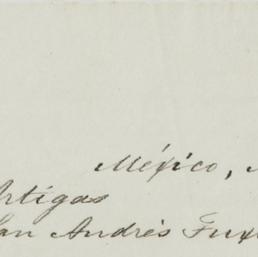 México,
Artigas
San Andrés Tuxt